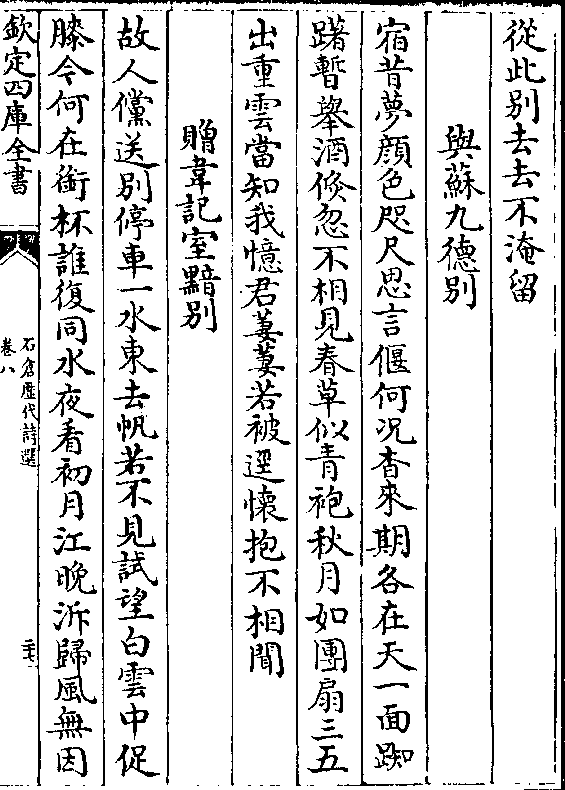 從此别去去不淹留
與蘇九德别
宿昔夢顔色咫尺思言偃何况杳來期各在天一面踟
躇暫舉酒倐忽不相見春草似青袍秋月如團扇三五
出重雲當知我憶君萋萋若被逕懷抱不相聞
贈韋記室黯别
故人儻送别停車一水東去帆若不見試望白雲中促
膝今何在銜杯誰復同水夜看初月江晚泝歸風無因
欽定四庫全書
石倉歷代詩選
卷八
二七